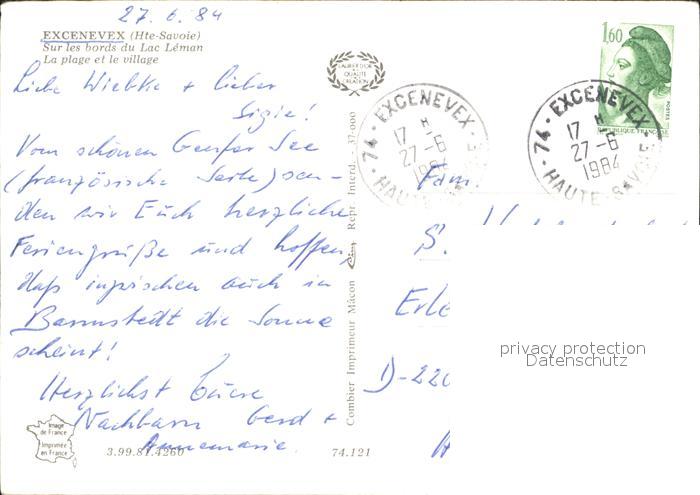 27.6.84
EXCENEVEX (Hte-Savoie)
Sur les bords du Lac Léman
La plage et le village
Liebe Wiebke + lieber
Sigie!
Vom schönen Genfer See
(französische Seite) sen-
den wir Euch herzliche
Feriengrüße und hoffen,
daß inzwischen auch in
Barmstedt die Sonne
scheint!
Herzlichst Euere
Nachbarn Gerd +
Annemarie.
Image de France
Imprimée en France
3.99.81.4260
74.121
Combier Imprimeur Mâcon
Repr. Interd. - 37-000
LAURIER D'OR
DE LA
QUALITE
CREATION
74 · EXCENEVEX · HAUTE-SAVOIE
17 H
27-6
1984
74 · EXCENEVEX · HAUTE-SAVOIE
17 H
27-6
1984
1,60
POSTES
REPUBLIQUE FRANÇAISE
Fam.
S.
Erle
D-220
privacy protection
Datenschutz